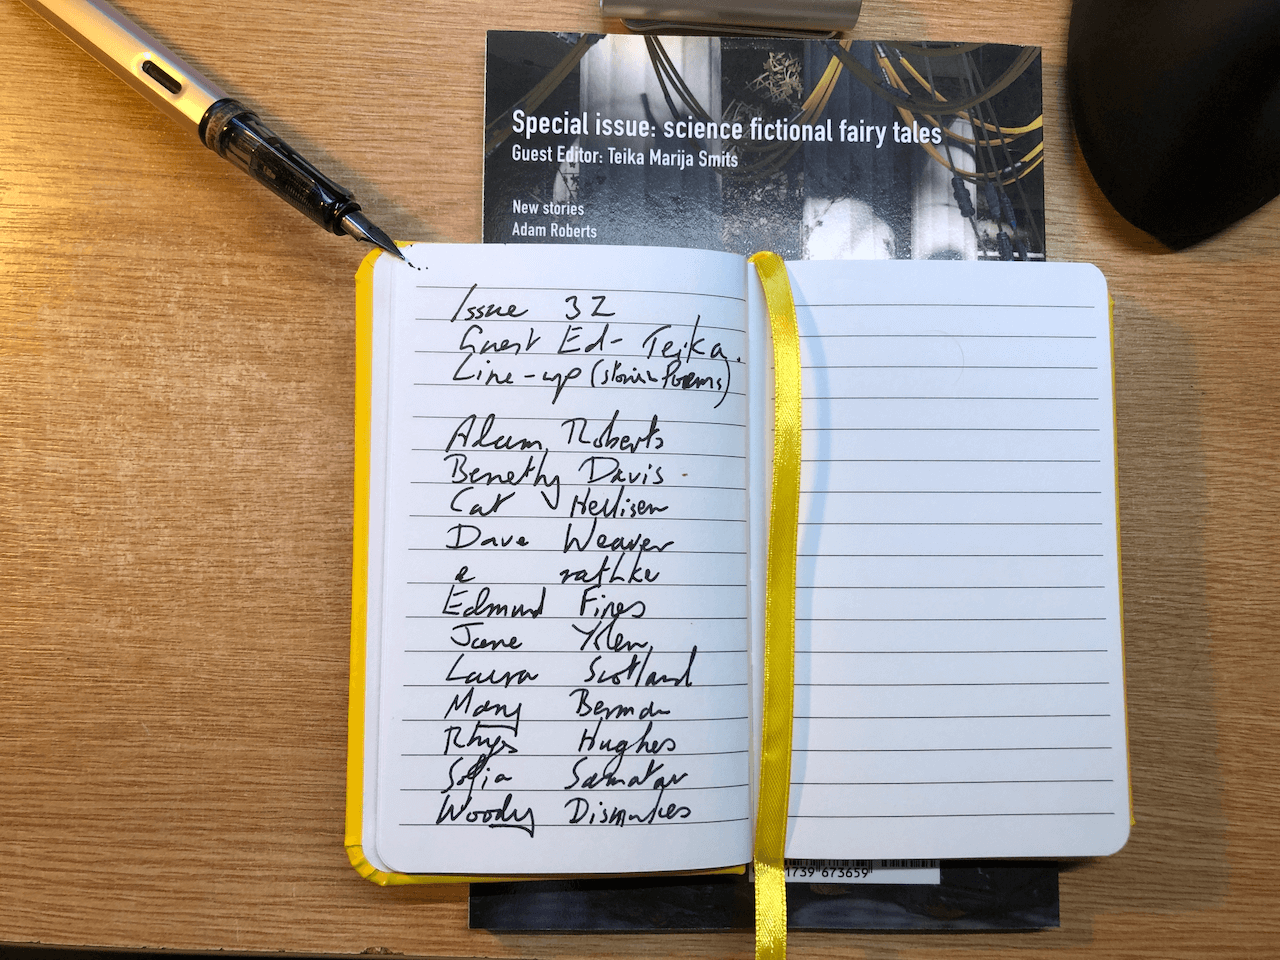 Special issue: science fictional fairy tales
Guest Editor: Teika Marija Smits
New stories
Adam Roberts
Issue 32
Guest Ed- Teika.
Line-up (stories Poems)
Adam Roberts
Benethy Davis
Cat Hellisen
Dave Weaver
e rathke
Edmund Fines
Jane Yolen
Laura Scotland
Mary Berman
Rhys Hughes
Sofia Samatar
Woody Dismukes
1739 673659